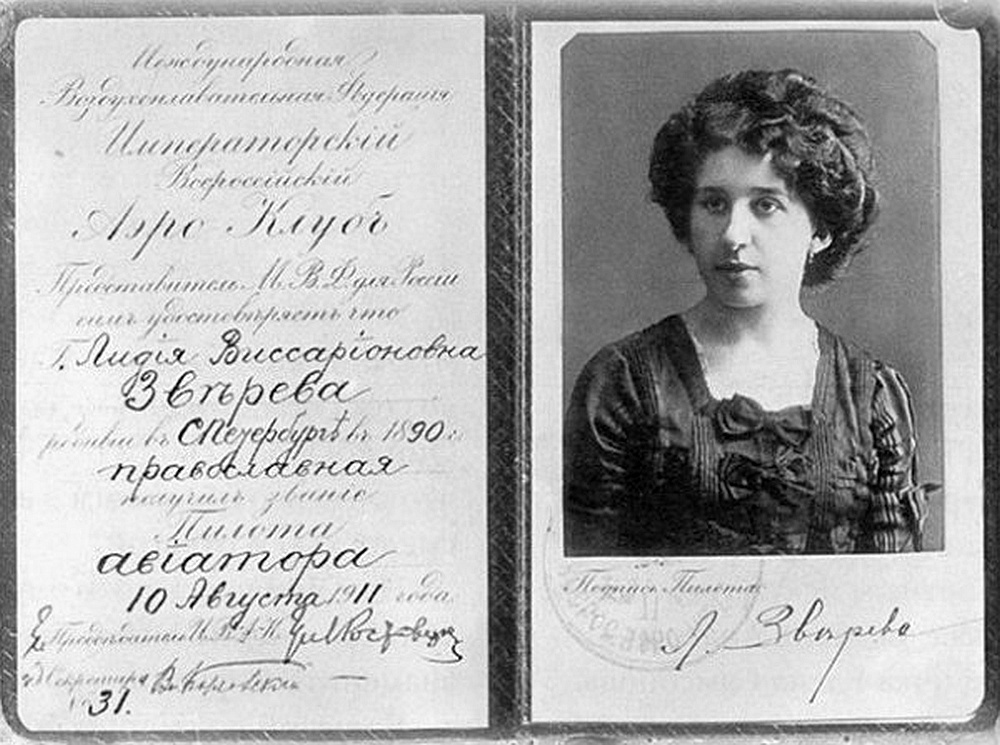 Международная
Воздухоплавательная Федерація
Императорскій
Всероссійскій
Аэро-Клубъ
Представитель М. В. Ф. для Россіи
симъ удостовѣряетъ что
Г. Лидія Виссаріоновна
Звѣрева
въ С Петербургѣ въ 1890 г.
православная
званіе
Пилота
авіатора
10 Августа 1911 года
Предсѣдатель И. В. А. К.
Секретарь
31.
Подпись Пилота
Л Звѣрева